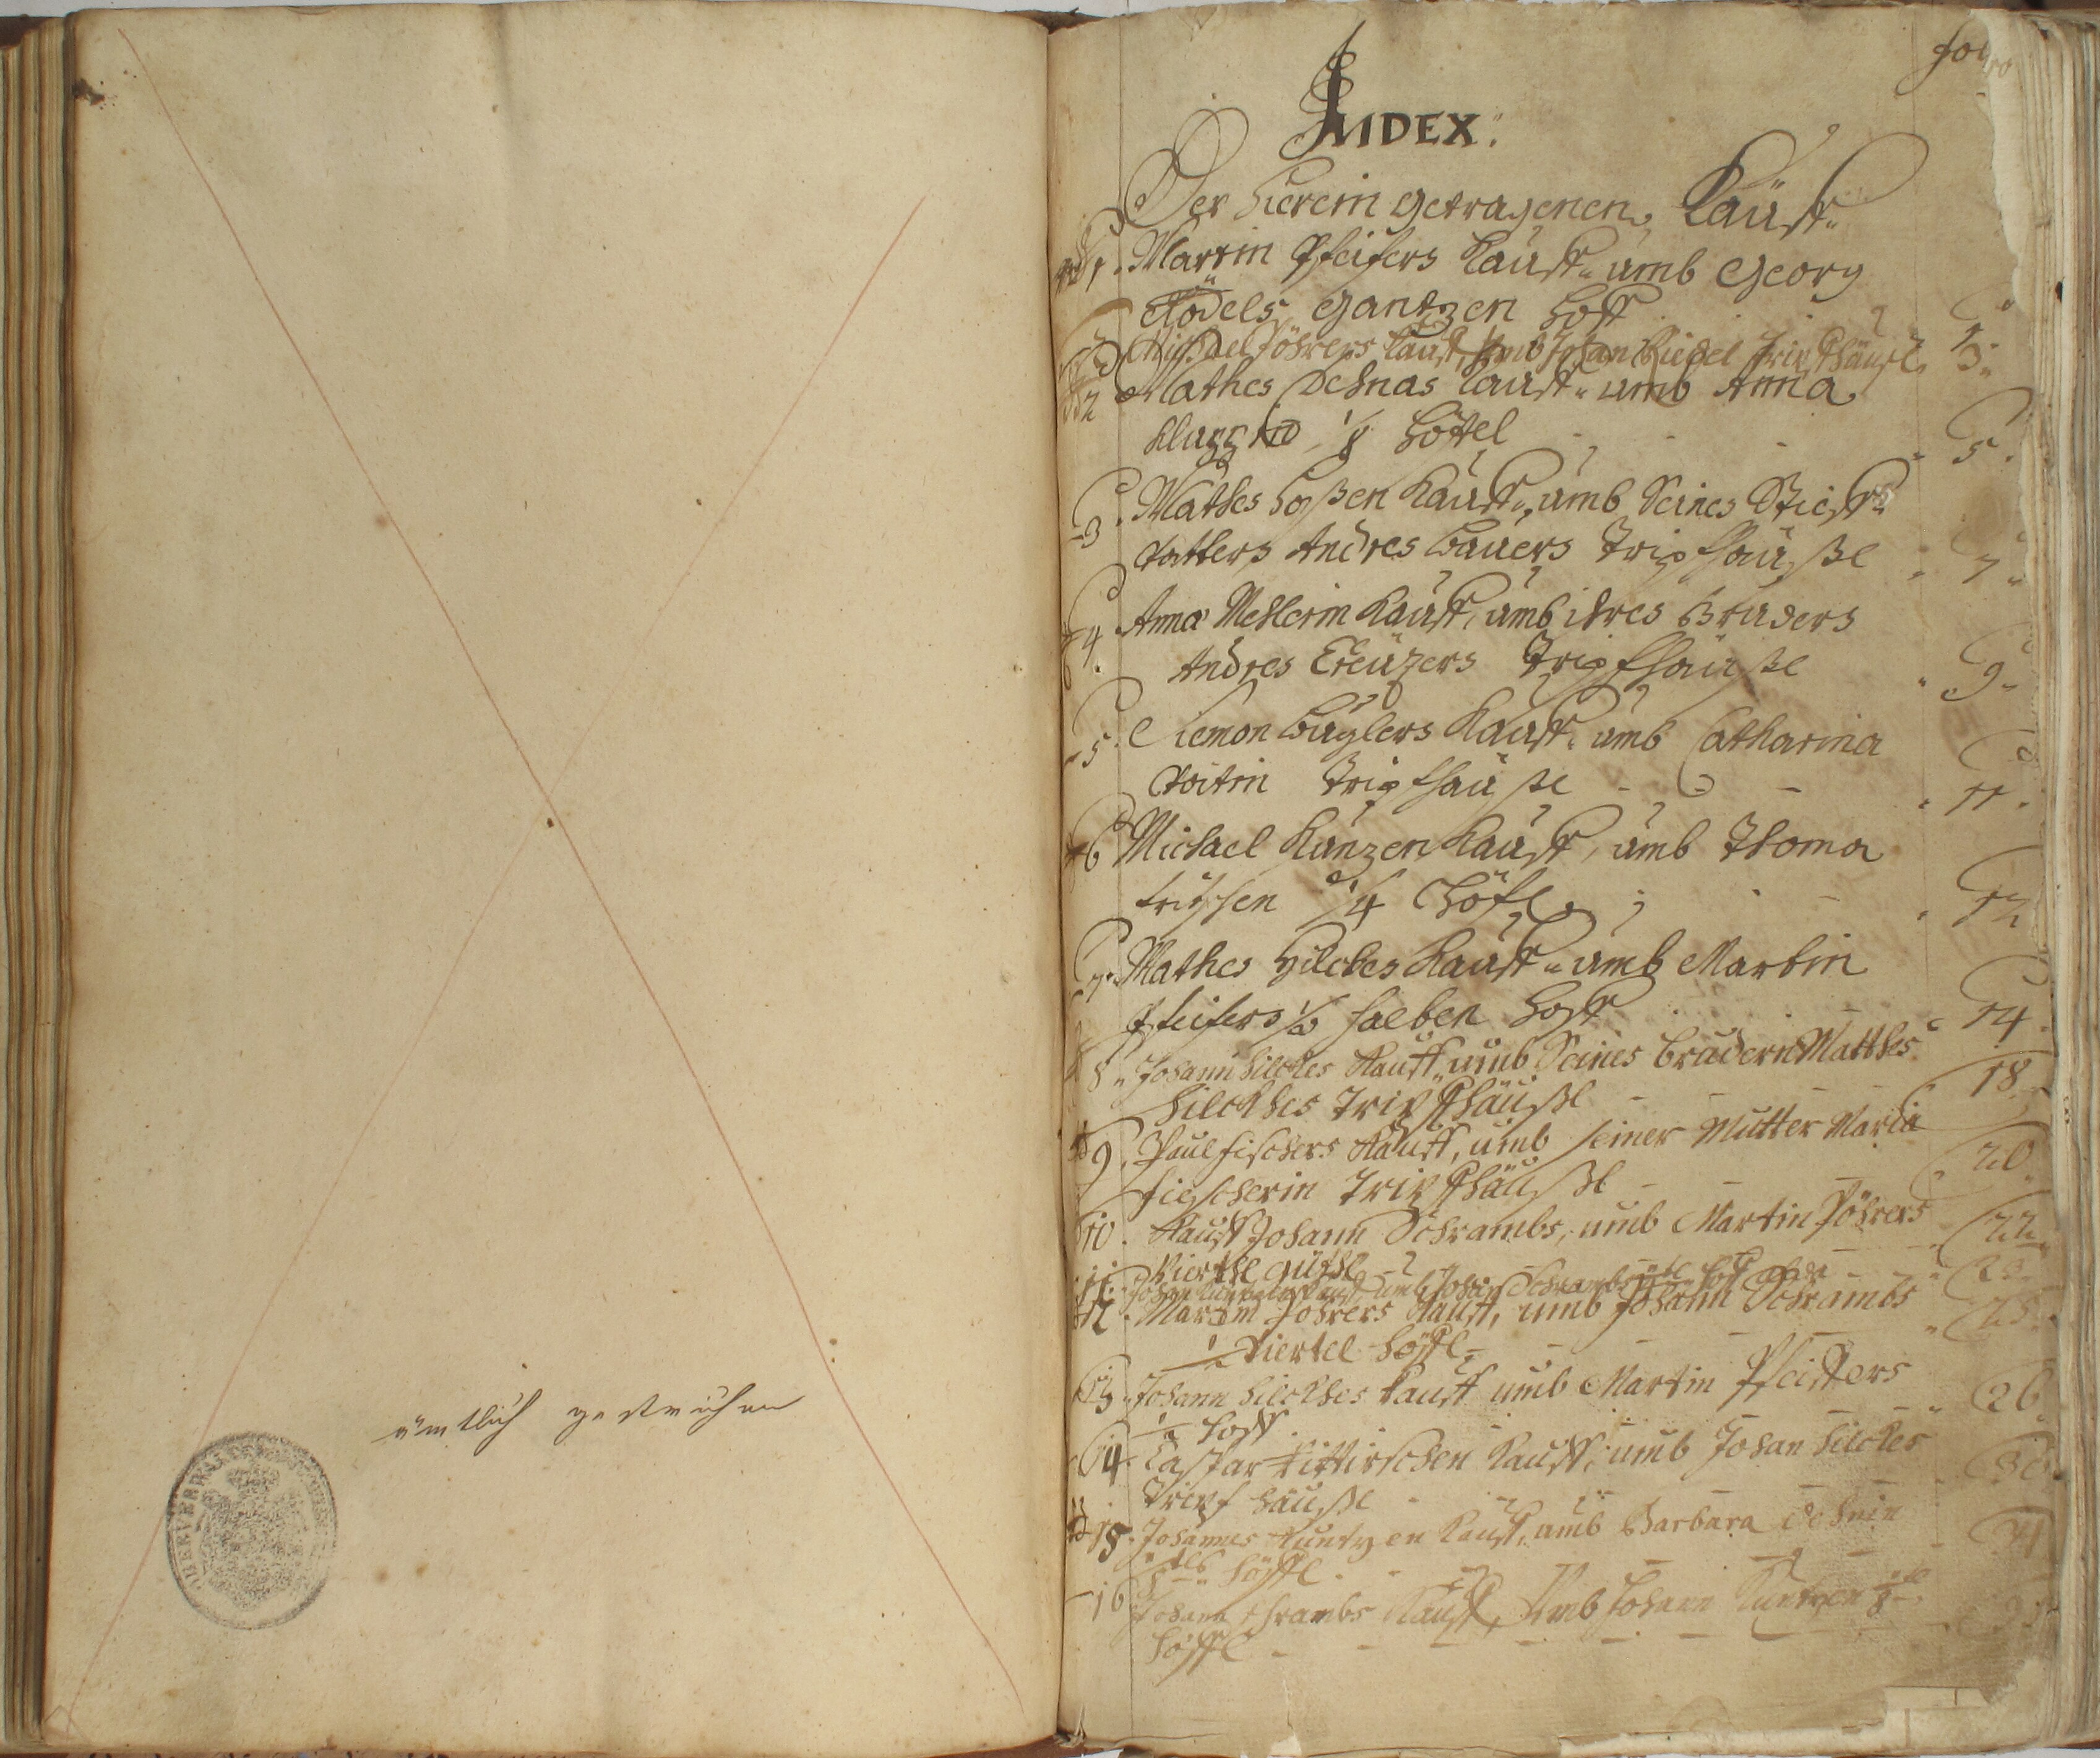 ämtlich gestrichen
Folio
INDEX:
Der hierein getragenen Käuff
1. Martin Pfeifers Kauff umb Georg
Rödels gantzen Hoff 1
Michael Föhrers Kauff, umb Johan Riedel Tripfhäusl 3
2 Mathes Dehnas Kauff umb Anna
1/8 Höffel 5
3. Mathes Hoßen Kauff, umb Seines Stieff
vatters Andres Bauers Tripfhäußl 7
4. Anna Mehlerin Kauff, umb ihres Bruders
Andres Creuzers Tripfhäußl 9
5. Siemon Buglers Kauff umb Catharina
Voitin Tripfhäußl 11
6 Michael Kunzen Kauff, umb Thoma
1/4 Höfl 12
7. Mathes Hilckes Kauff umb Martin
Pfeifers 1/2 halben Hoff 14
8. Johann Hilckes Kauff umb Seines Brudern Matthes
Hilckhes Tripffhäußl 18
9. Paul Fischers Kauff, umb seiner Mutter Maria
Fischerin Tripffhäußl 20
10. Kauff Johann Schrambs, umb Martin Föhrers
Vierthl güthl 22
11. Johan Kauff umb Johan Schrambs Hoff 23
12. Martin Föhrers Kauff, umb Johann Schrambs
1/2 Viertel Höffl 25
13. Johann Hilckhes Kauff umb Martin Pfeiffers
1/2 Hoff 26
14. Caspar Kauff, umb Johan Hilckes
Tripf häußl 30
15. Johannes Kuntzen Kauff, umb Barbara Dehnin
8tls Höffl 31
16 Johann Schrambs Kauff, Umb Johann Kuntzen 1/8
Höffl